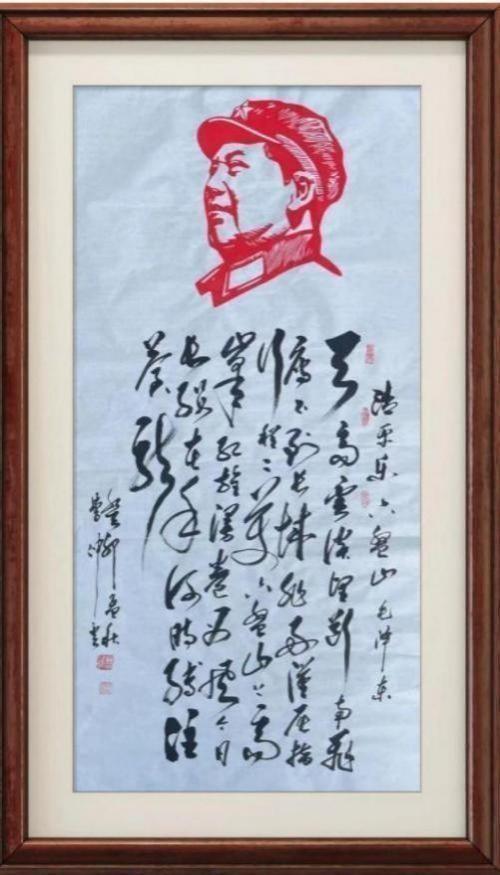 清平乐六盘山 毛泽东
天高雲淡望断南飞
雁不到长城非好汉屈指
行程二万六盘山上高
峯红旗漫卷西风今日
长缨在手何时缚住
苍龙
癸卯孟秋